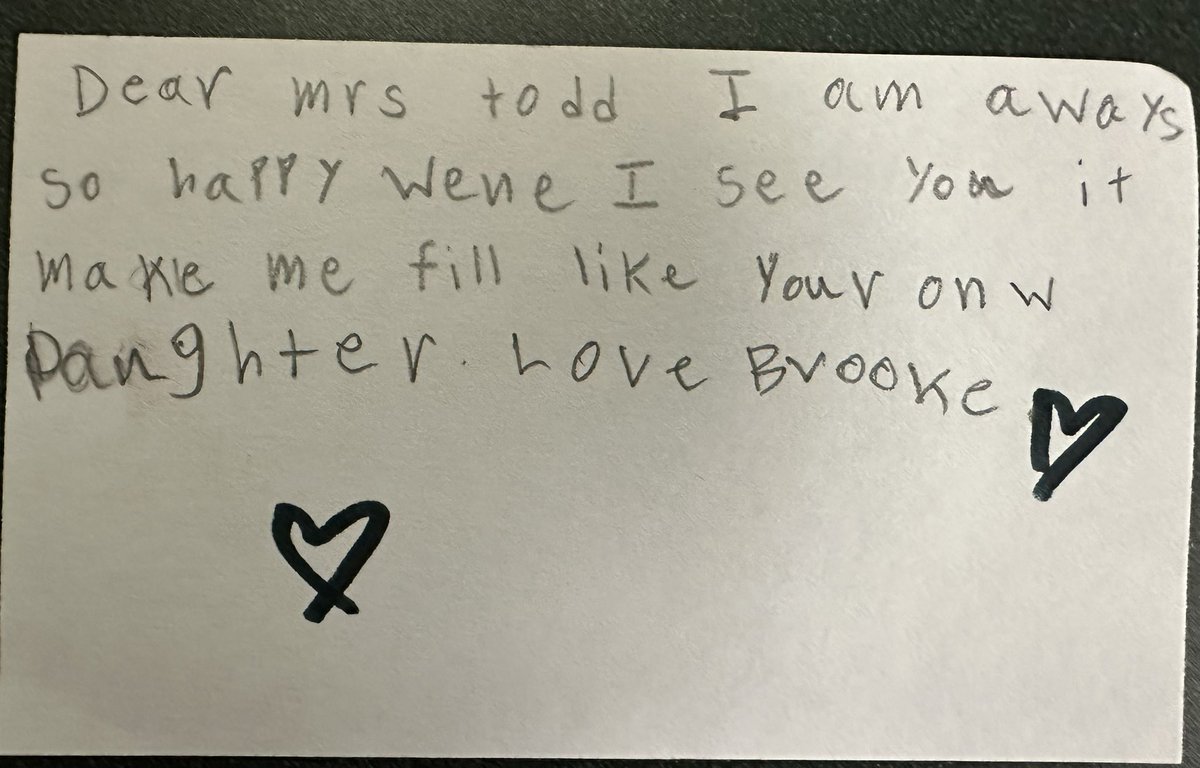 Dear mrs todd I am aways
so happy wene I see you it
make me fill like your onw
Daughter. Love Brooke